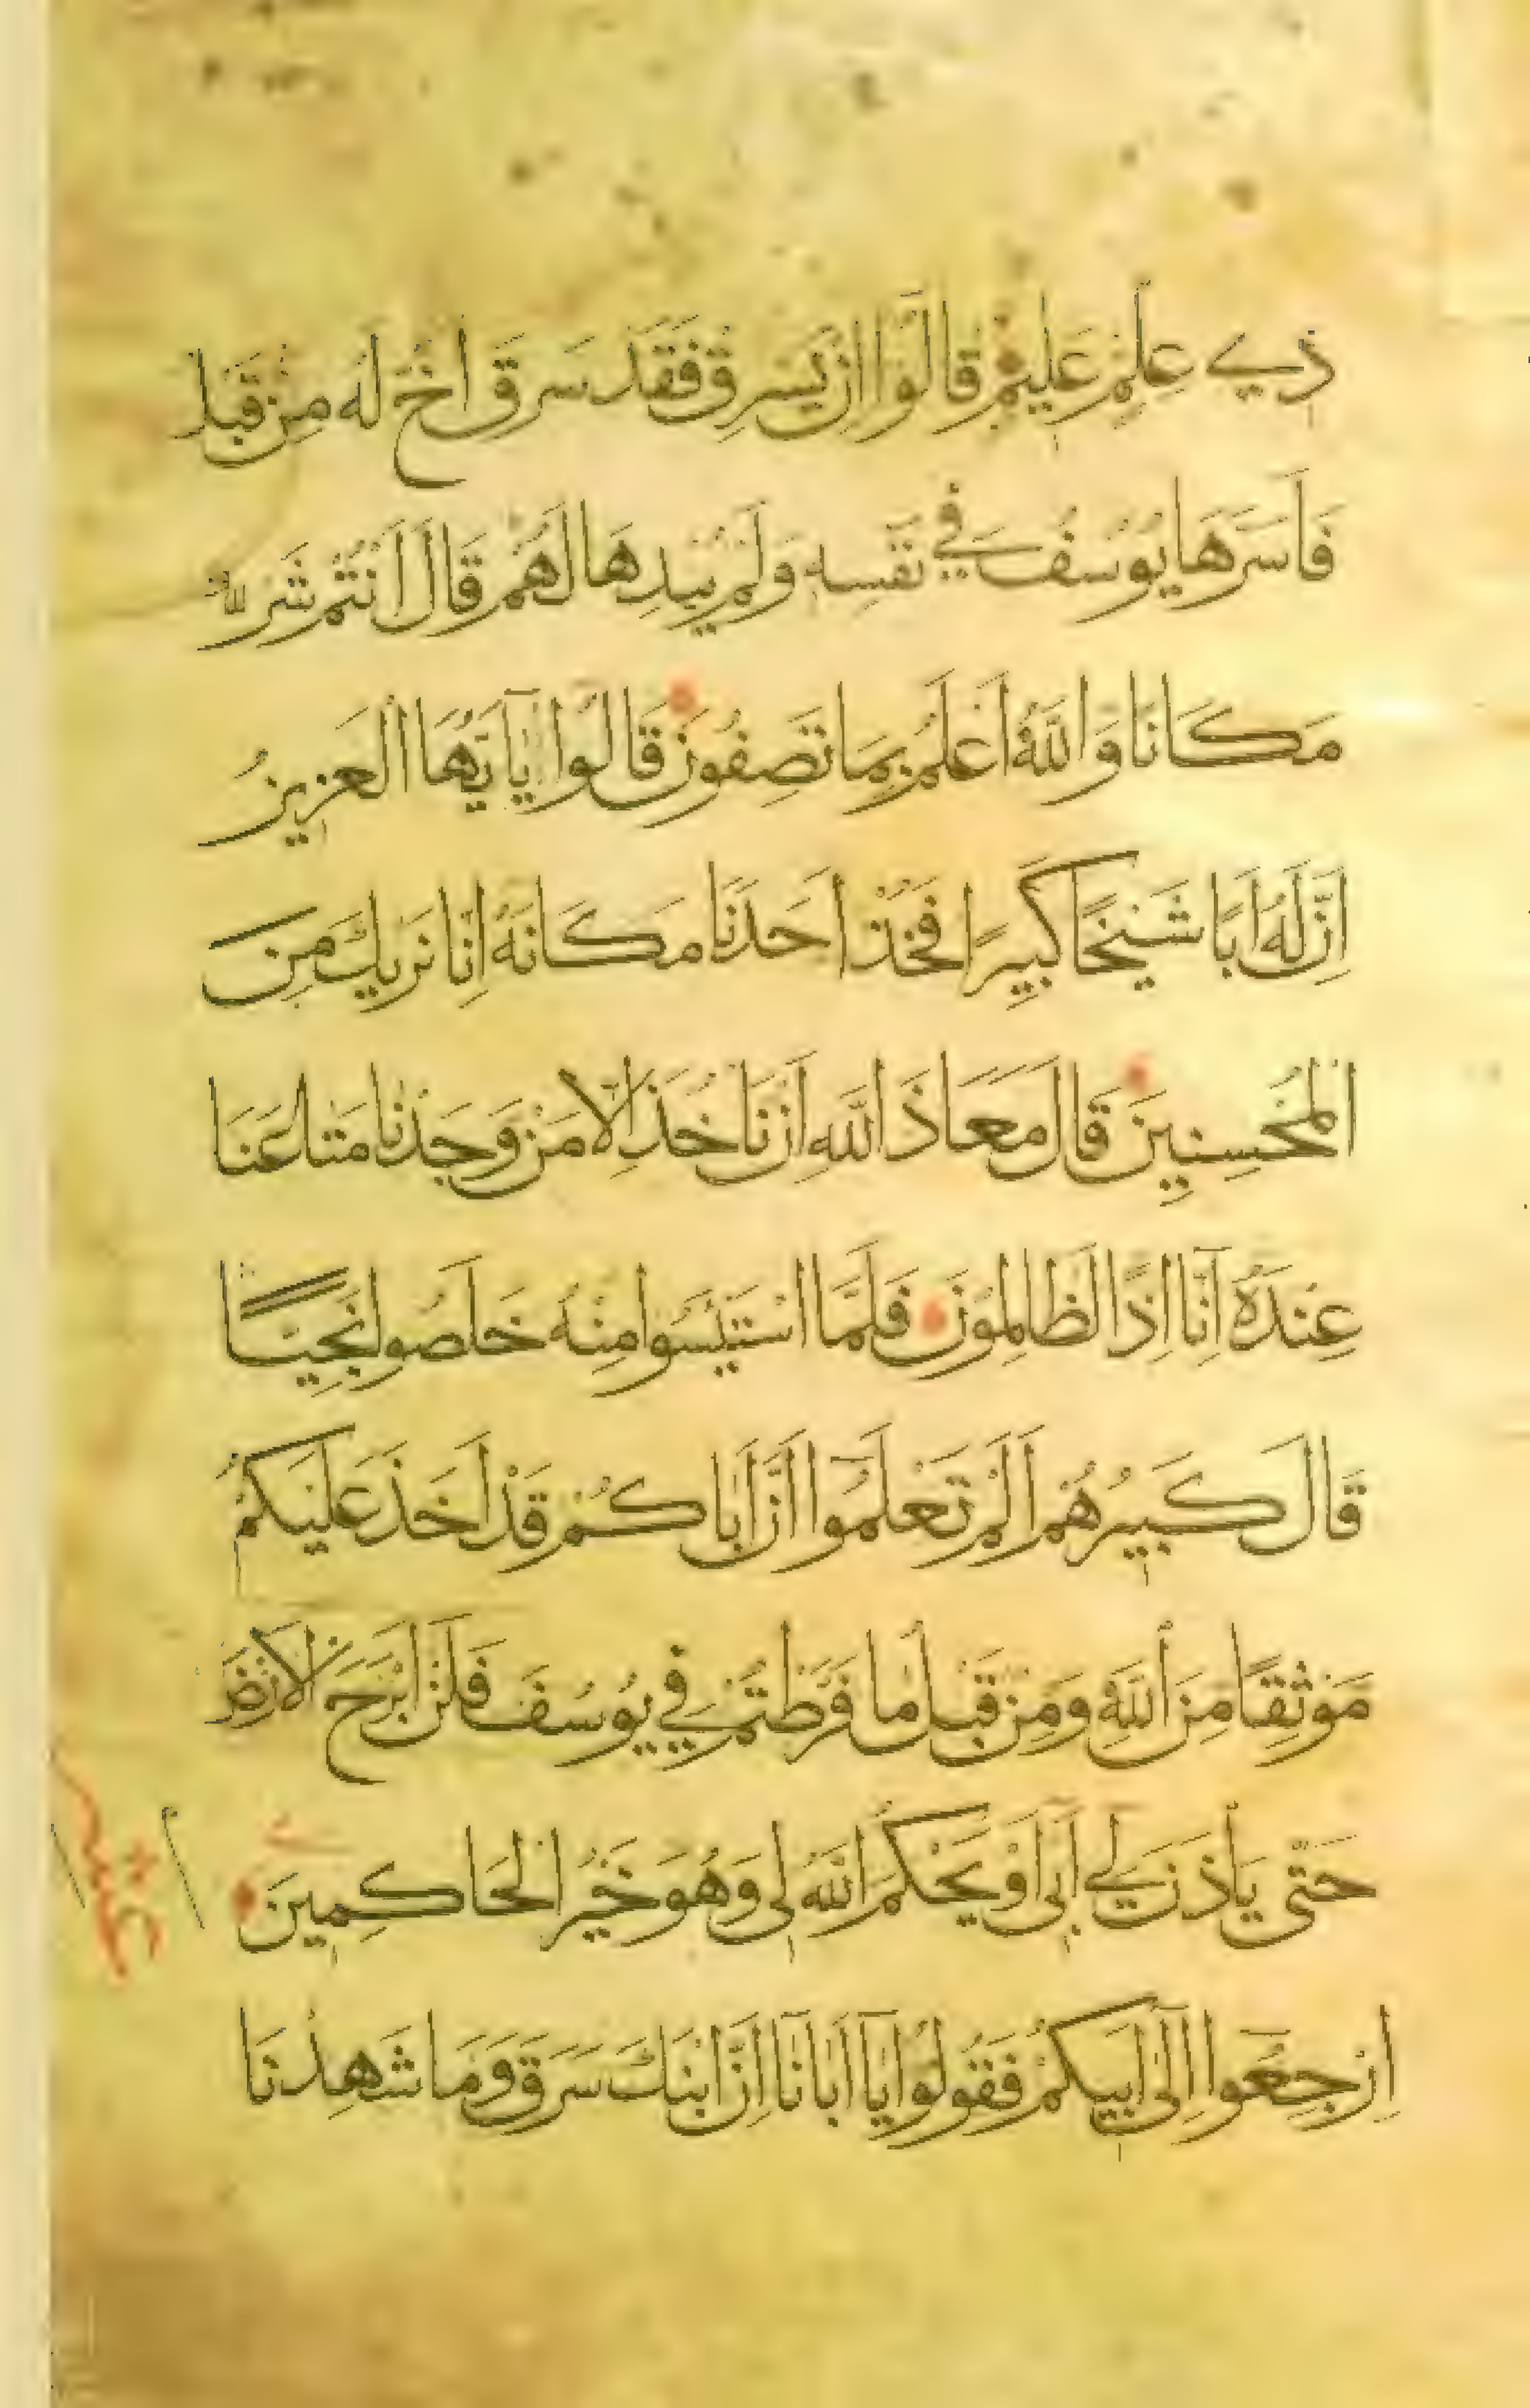 ذِي عِلْمٍ عَلِيمٌ قَالُوا اِنْ يَسْرِقْ فَقَدْ سَرَقَ اَخٌ لَهُ مِنْ قَبْلُ
فَاَسَرَّهَا يُوسُفُ فِي نَفْسِهِ وَلَمْ يُبْدِهَا لَهُمْ قَالَ اَنْتُمْ شَرٌّ
مَكَانًا وَاللّٰهُ اَعْلَمُ بِمَا تَصِفُونَ قَالُوا يَا اَيُّهَا الْعَزِيزُ
اِنَّ لَهُ اَبًا شَيْخًا كَبِيرًا فَخُذْ اَحَدَنَا مَكَانَهُ اِنَّا نَرٰيكَ مِنَ
الْمُحْسِنِينَ قَالَ مَعَاذَ اللّٰهِ اَنْ نَاْخُذَ اِلَّا مَنْ وَجَدْنَا مَتَاعَنَا
عِنْدَهُ اِنَّا اِذًا لَظَالِمُونَ فَلَمَّا اسْتَيْئَسُوا مِنْهُ خَلَصُوا نَجِيًّا
قَالَ كَبِيرُهُمْ اَلَمْ تَعْلَمُوا اَنَّ اَبَاكُمْ قَدْ اَخَذَ عَلَيْكُمْ
مَوْثِقًا مِنَ اللّٰهِ وَمِنْ قَبْلُ مَا فَرَّطْتُمْ فِي يُوسُفَ فَلَنْ اَبْرَحَ الْاَرْضَ
حَتّٰى يَاْذَنَ لِي اَبِى اَوْ يَحْكُمَ اللّٰهُ لِى وَهُوَ خَيْرُ الْحَاكِمِينَ
اِرْجِعُوا اِلٰى اَبِيكُمْ فَقُولُوا يَا اَبَانَا اِنَّ ابْنَكَ سَرَقَ وَمَا شَهِدْنَا